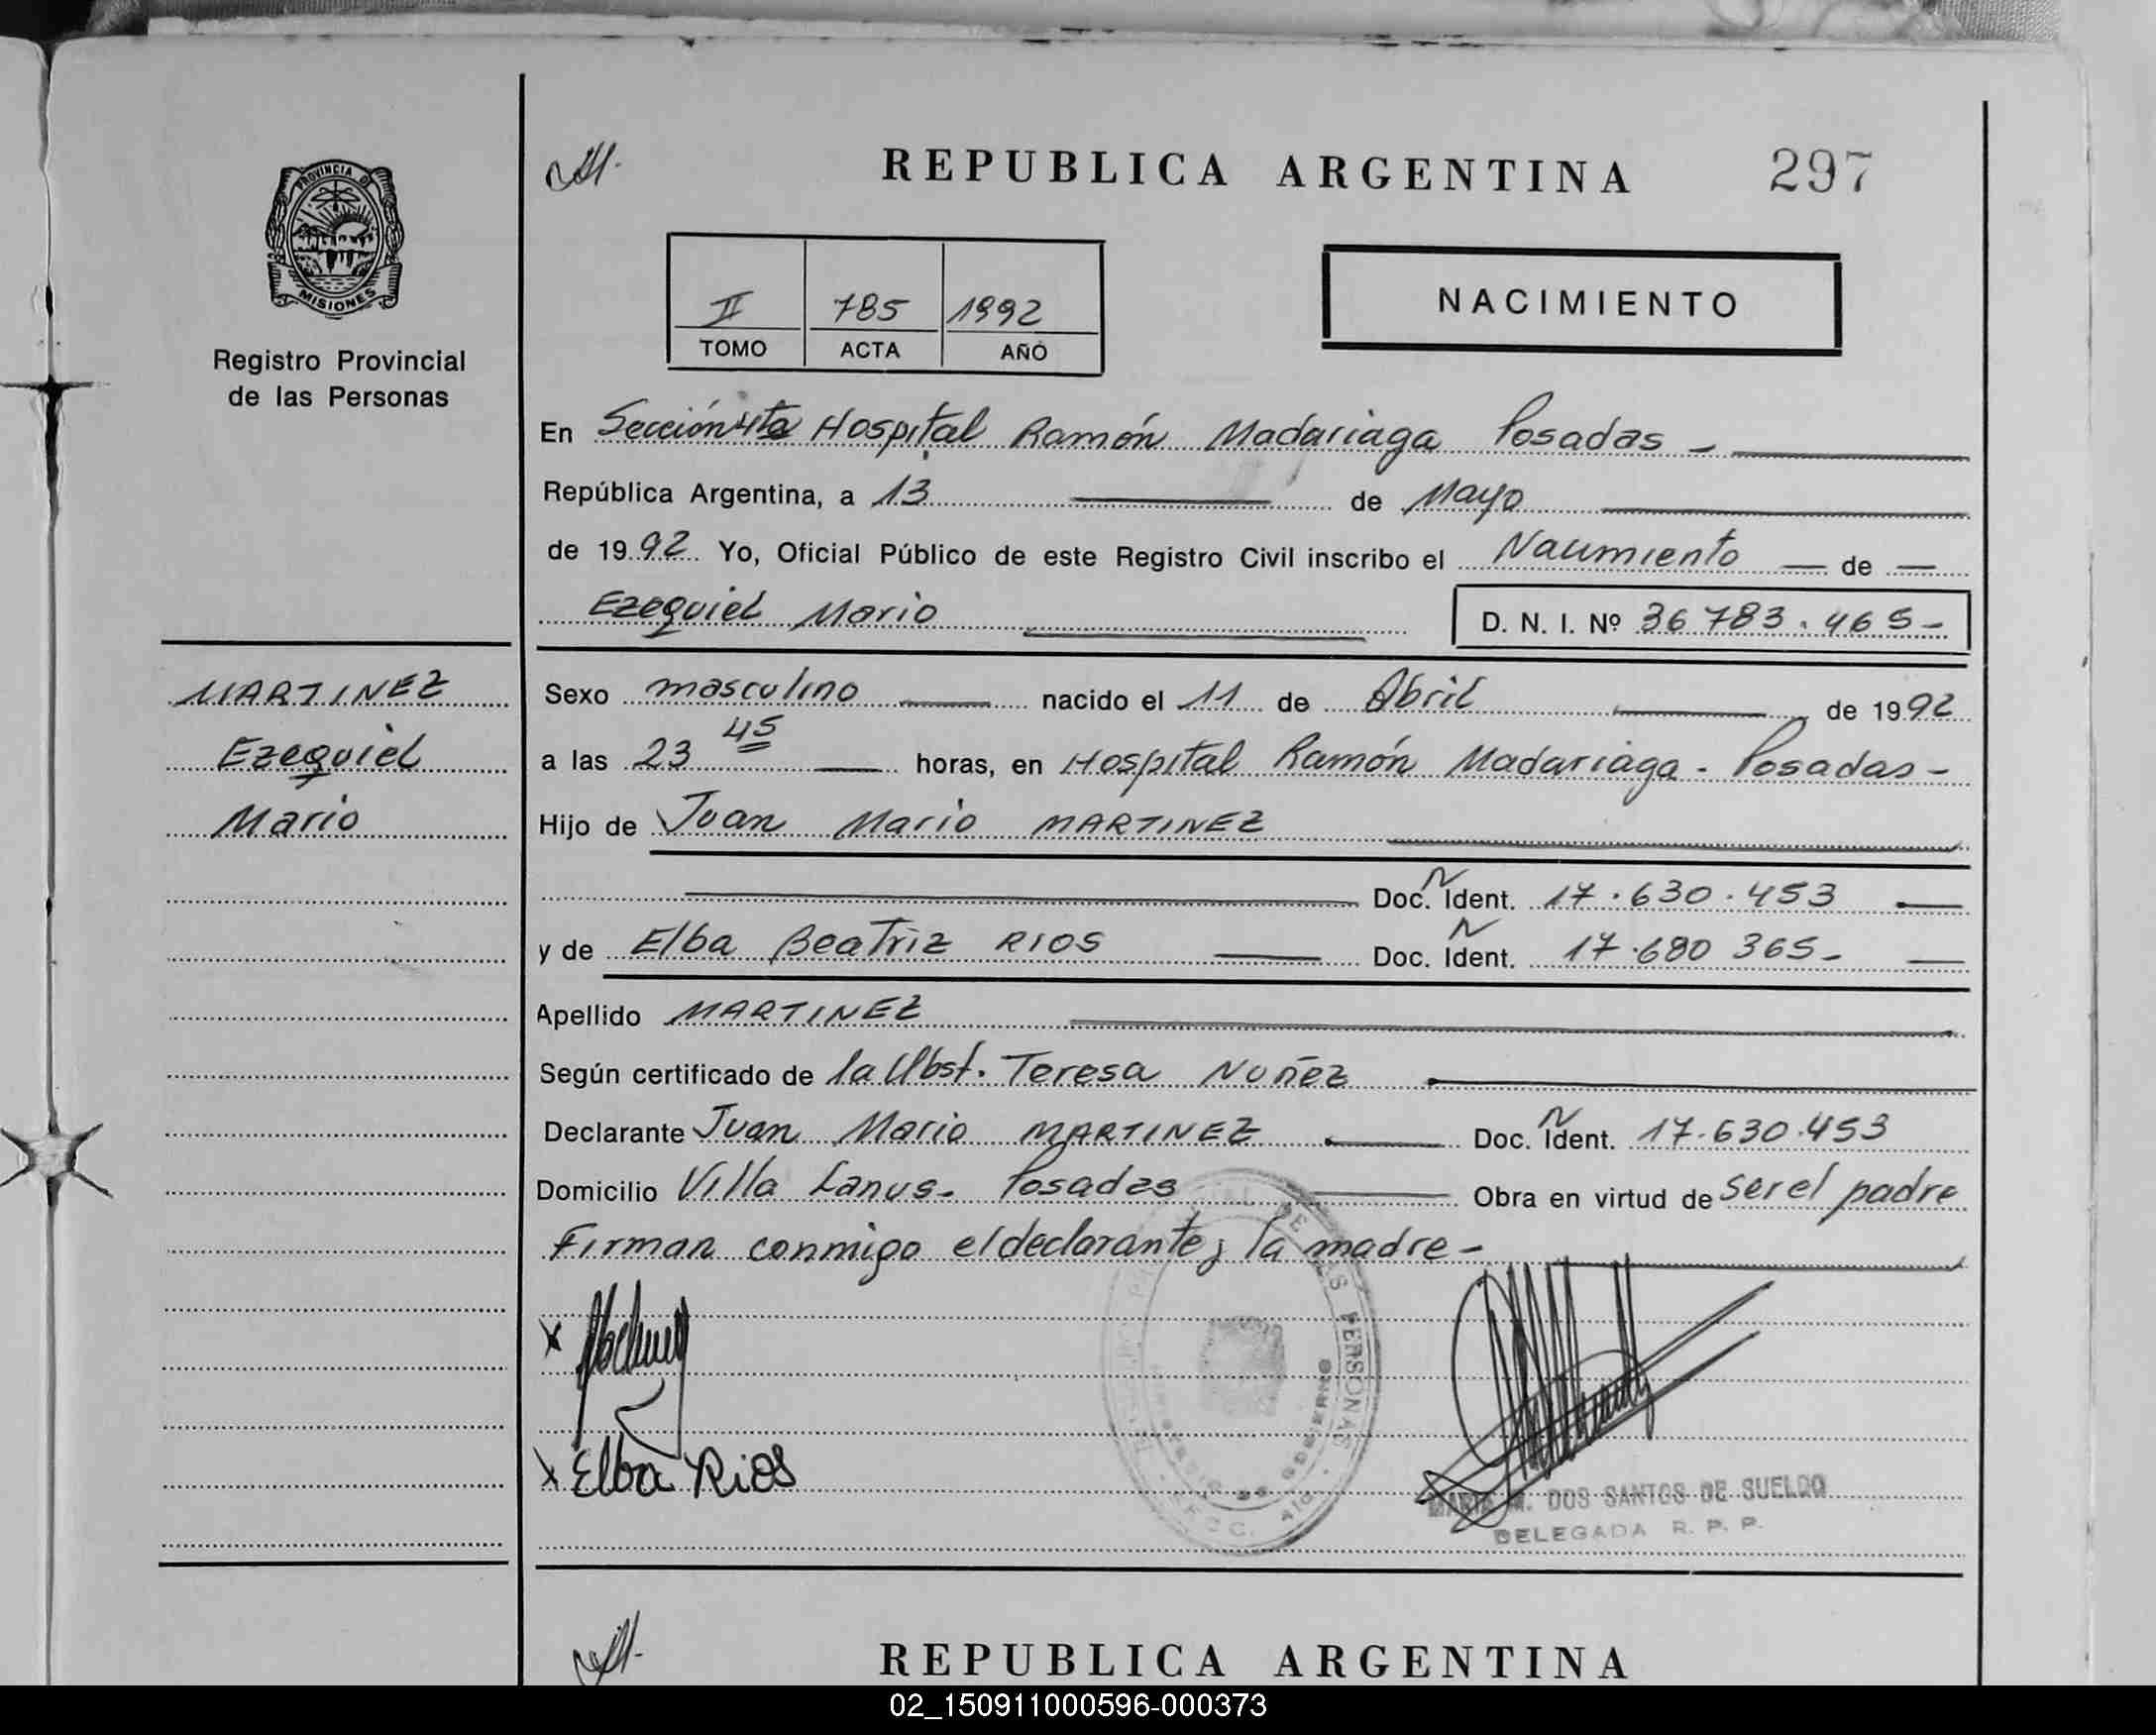 PROVINCIA DE
MISIONES
Registro Provincial
de las Personas
MARTINEZ
Ezequiel
Mario
REPUBLICA ARGENTINA 297
II 785 1992
TOMO ACTA AÑO
NACIMIENTO
En Sección 4ta Hospital Ramón Madariaga Posadas -
República Argentina, a 13 de Mayo
de 1992 Yo, Oficial Público de este Registro Civil inscribo el Nacimiento de
Ezequiel Mario D. N. I. Nº 36.783.465-
Sexo masculino nacido el 11 de Abril de 1992
a las 23 45 horas, en Hospital Ramón Madariaga - Posadas -
Hijo de Juan Mario MARTINEZ
Doc. N Ident. 17.630.453
y de Elba Beatriz RIOS Doc. N Ident. 17.680 365-
Apellido MARTINEZ
Según certificado de la Obst. Teresa Nuñez
Declarante Juan Mario MARTINEZ Doc. N Ident. 17.630.453
Domicilio Villa Lanus - Posadas Obra en virtud de ser el padre
Firman conmigo el declarante y la madre -
x
x Elba Rios
DE LAS PERSONAS
DE GOBIERNO
MARIA M. DOS SANTOS DE SUELDO
DELEGADA R. P. P.
REPUBLICA ARGENTINA
02_150911000596-000373